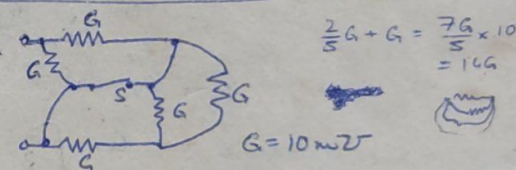 G
G
S
G
G
G
G = 10 m℧
2/5 G + G = 7G/5 × 10
= 14G